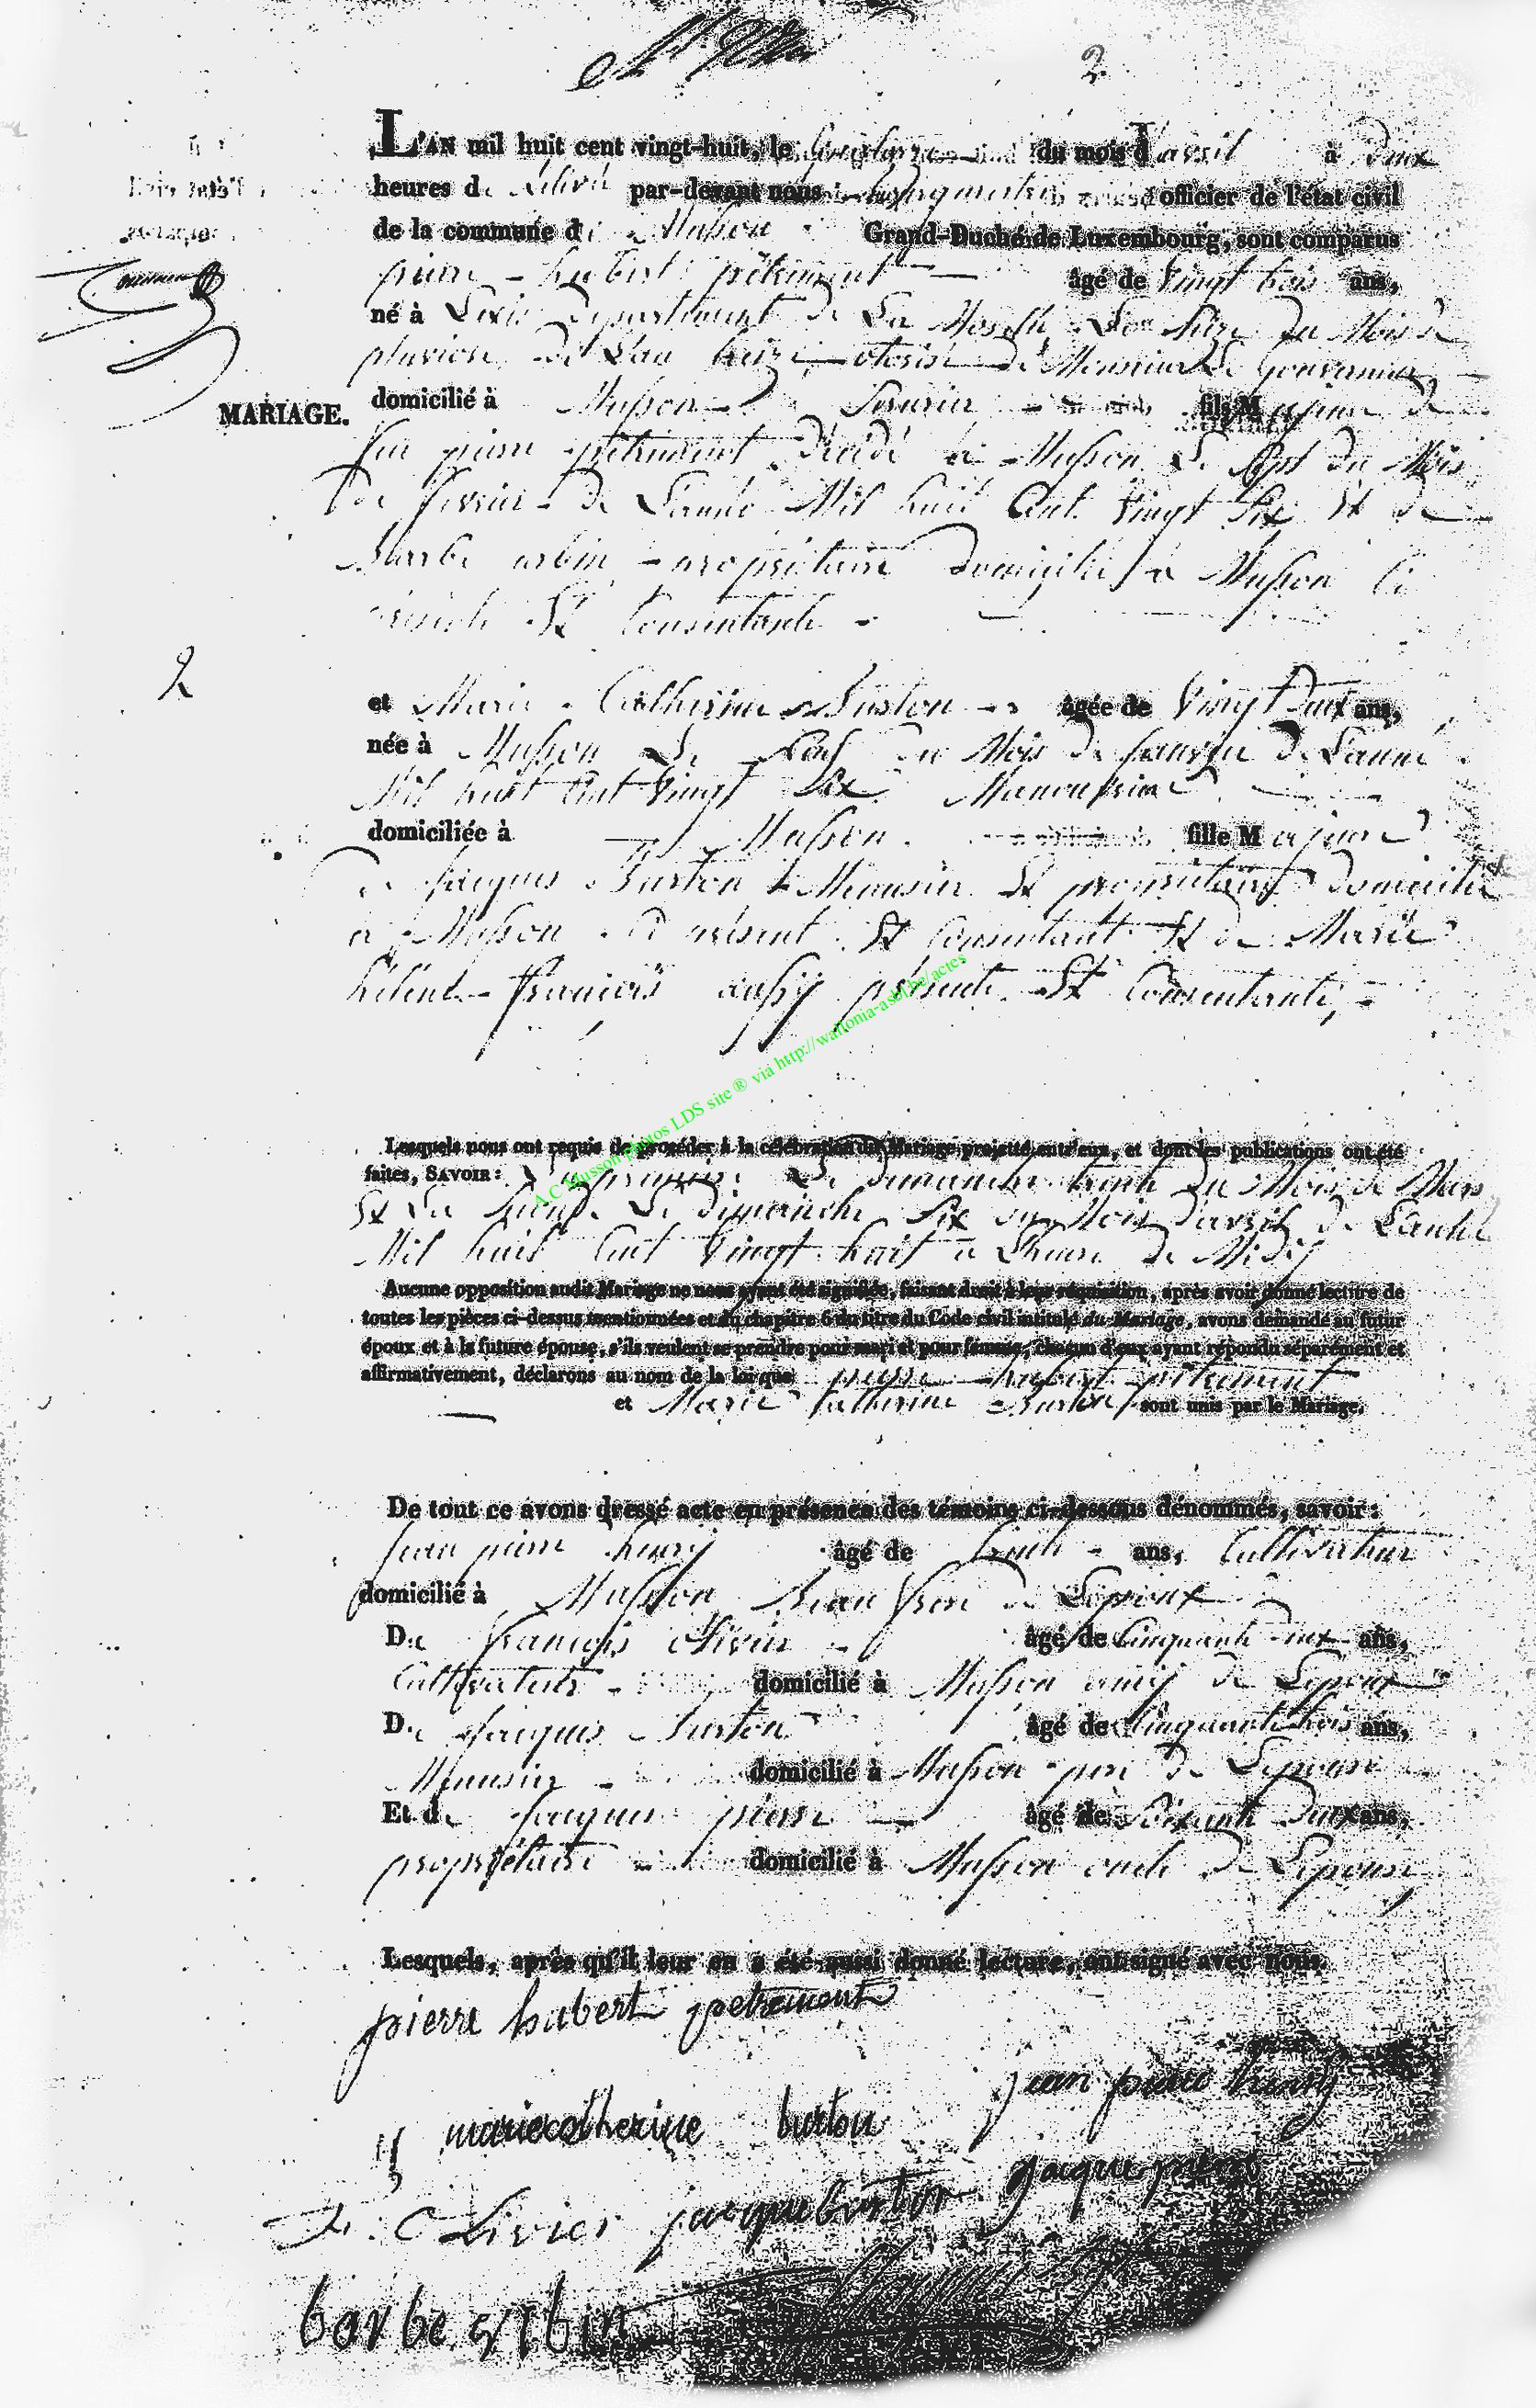 2
L'AN mil huit cent vingt-huit, le quatorze du mois d'avril à deux
heures de relevé par-devant nous bourgmestre officier de l'état civil
de la commune de Musson Grand-Duché de Luxembourg, sont comparus
pierre hubert pétrement âgé de vingt trois ans,
né à Lexie département de La Moselle Le du Mois de
pluviose de L'an treize otorisé de Monsieur Le Gouverneur
MARIAGE. domicilié à Musson fils Majeur de
feu pierre pétrement décédé à Musson Le sept du Mois
De fevrier de L'année Mil huit Cent vingt six Et de
Barbe arbin propriétaire domicilié à Musson Ci
présente Et Consentante
2
et Marie Catherine Burton âgée de vingt deux ans,
née à Musson Le du Mois de janvier de L'année
Mil huit Cent vingt six
domiciliée à Musson fille Majeure
de jacques Burton Menusier Et propriétaire domicilié
à Musson Ci présent Et Consentant Et de Marie
hélène francois aussy présente Et Consentante,
Lesquels nous ont requis de procéder à la célébration du Mariage projetté entr'eux, et dont les publications ont été
faites, SAVOIR: Le dimanche trente du Mois de Mars
Et La Seconde Le dimanche six du Mois d'avril de L'année
Mil huit Cent vingt huit à L'heure de Midy
Aucune opposition audit Mariage ne nous ayant été signifiée, faisant droit à leur réquisition, après avoir donné lecture de
toutes les pièces ci-dessus mentionnées et du chapitre 6 du titre du Code civil intitulé du Mariage, avons demandé au futur
époux et à la future épouse, s'ils veulent se prendre pour mari et pour femme; chacun d'eux ayant répondu séparément et
affirmativement, déclarons au nom de la loi que pierre hubert pétrement
et Marie Catherine Burton sont unis par le Mariage.
De tout ce avons dressé acte en présence des témoins ci-dessous dénommés, savoir:
Jean pierre henry âgé de trente ans, Cultivateur
domicilié à Musson Beau frere de L'epoux
De françois olivier âgé de Cinquante deux ans,
Cultivateur domicilié à Musson amy de L'epoux
De jacques Burton âgé de Cinquante trois ans,
Menusier domicilié à Musson pere de L'epouse
Et de jacques pierre âgé de Soixante deux ans,
propriétaire domicilié à Musson oncle de L'epouse
Lesquels, après qu'il leur en a été aussi donné lecture, ont signé avec nous.
pierre hubert petrement
jean pierre henry
marie catherine burton
jacque pierre
f. oLivier jacque burton
barbe arbin
A.C Musson photos LDS site ® via http://wallonia-asbl.be/actes